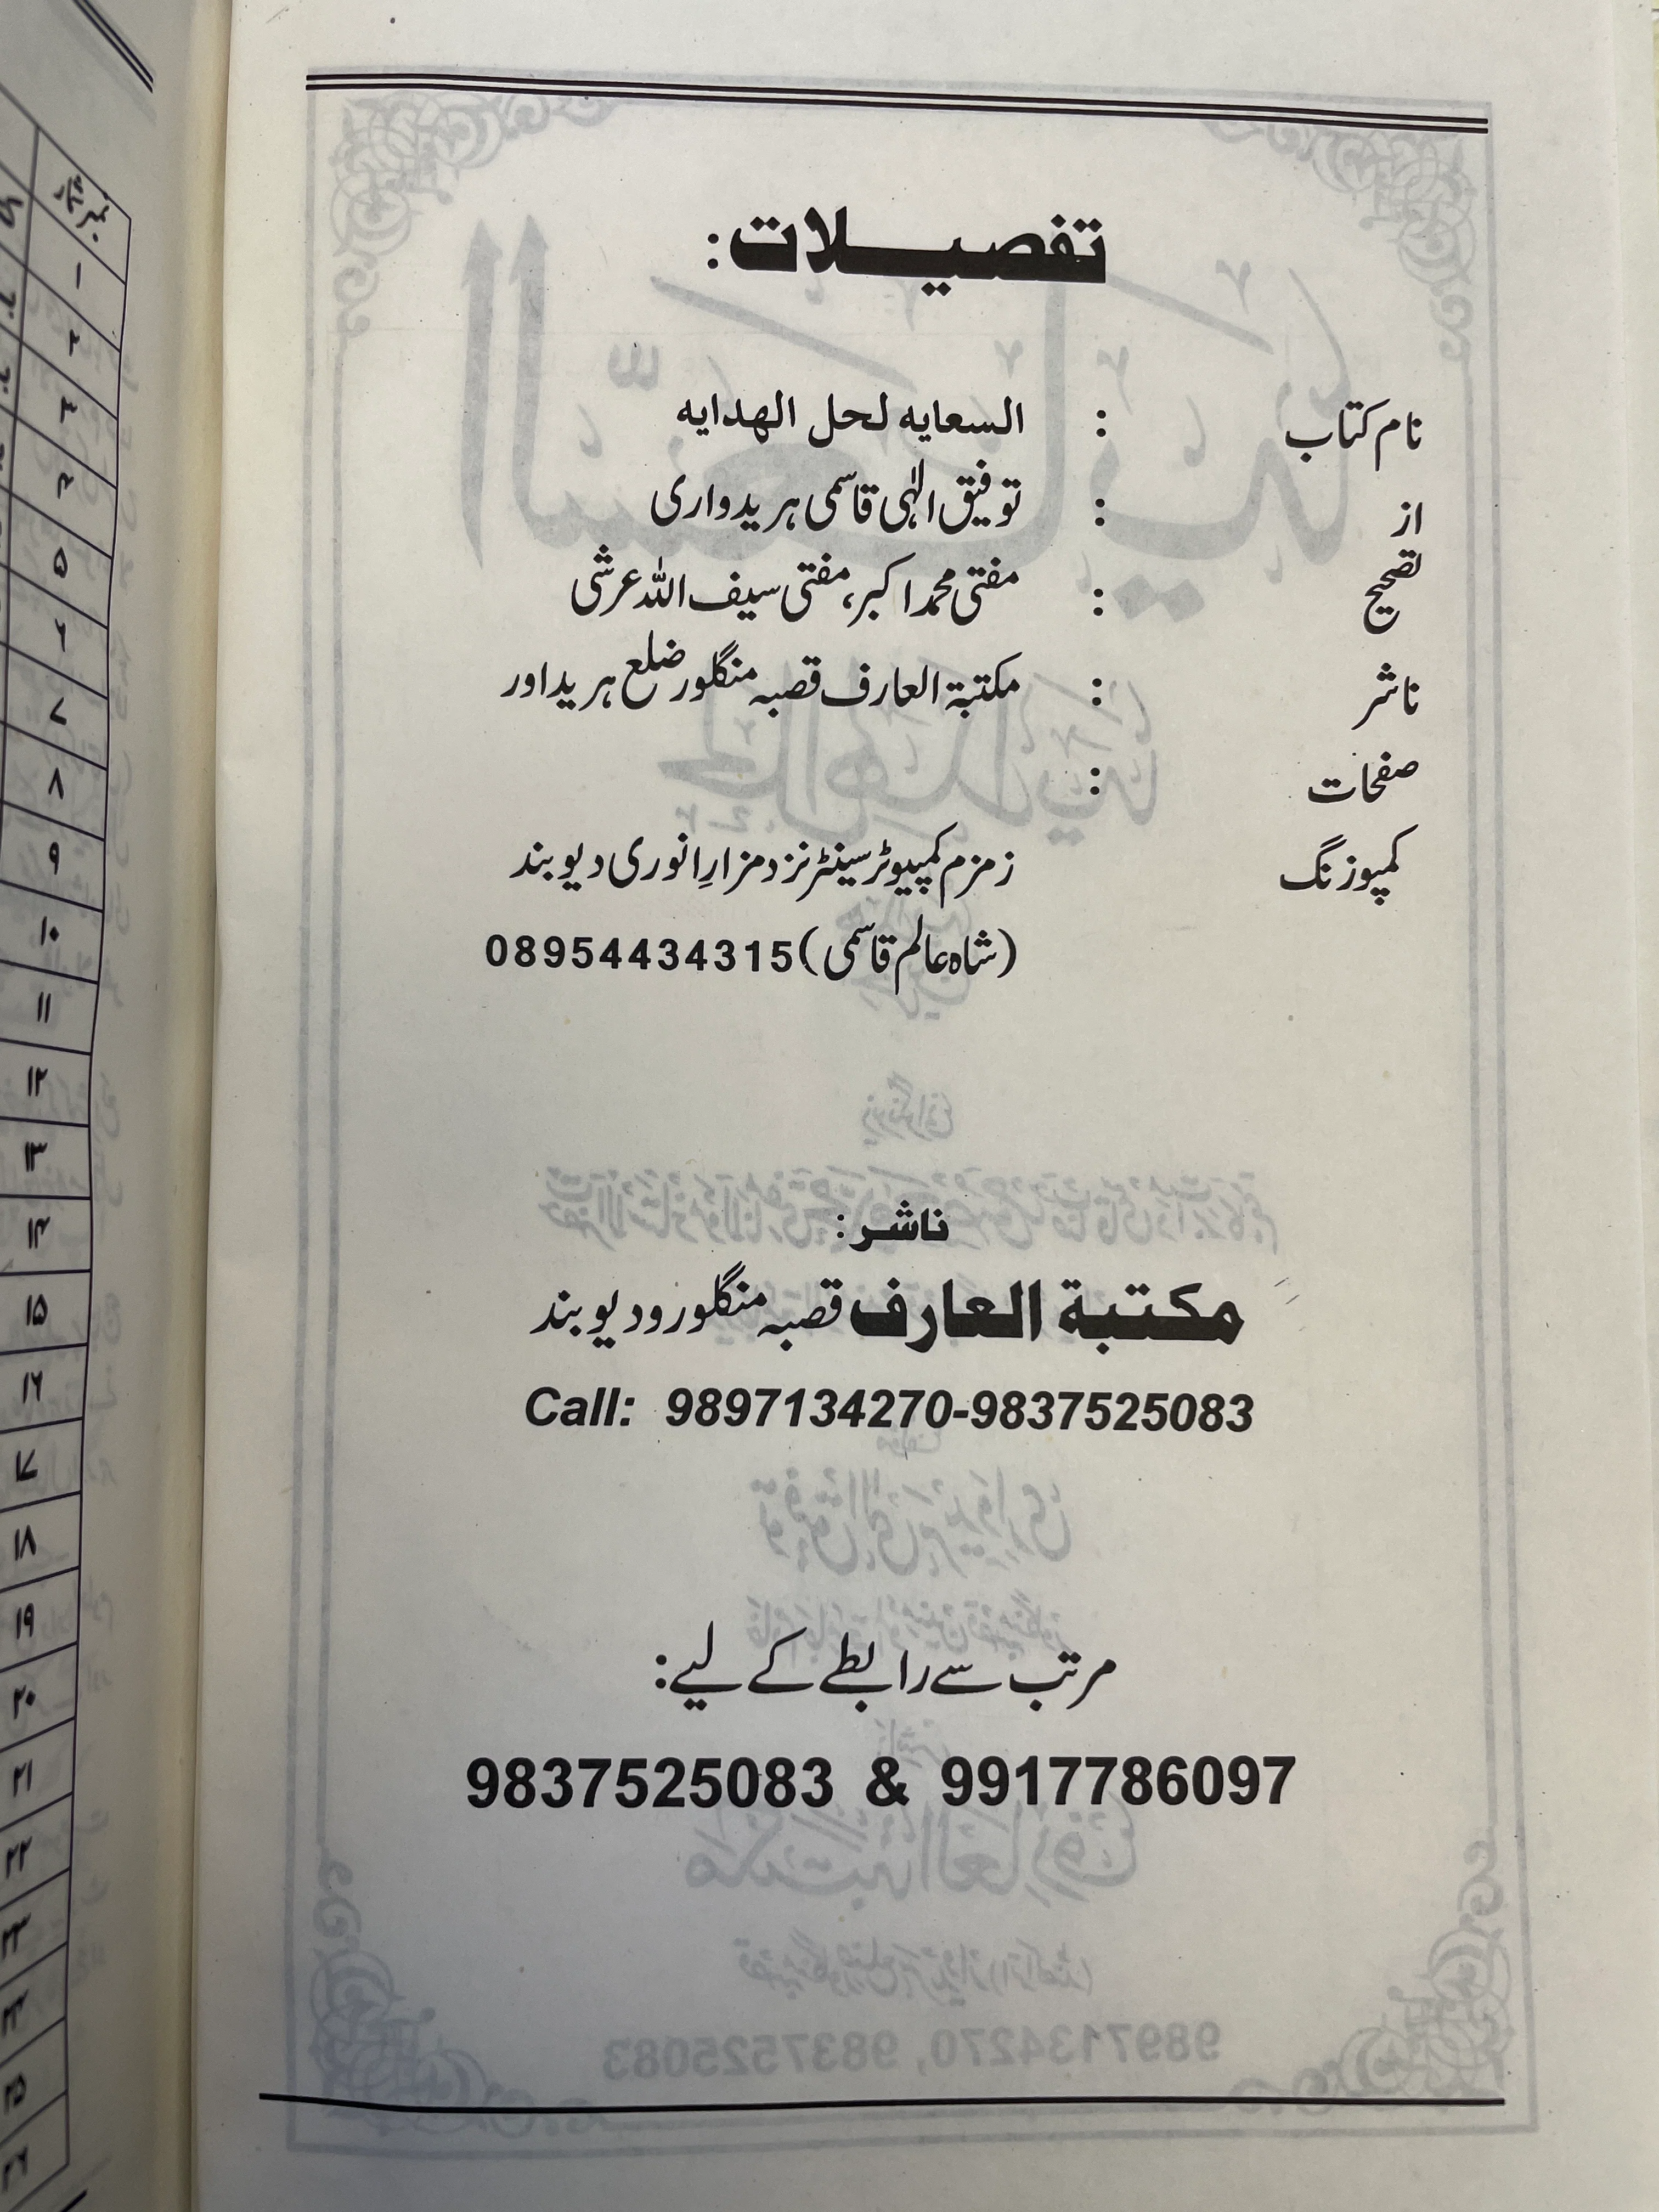 تفصیلات:
نام کتاب : السعایہ لحل الهدایہ
از : توفیق الٰہی قاسمی ہریدواری
تصحیح : مفتی محمد اکبر، مفتی سیف اللہ عرشی
ناشر : مکتبۃ العارف قصبہ منگلور ضلع ہریداور
صفحات :
کمپوزنگ زمزم کمپیوٹر سینٹر نزد مزارِ انوری دیوبند
(شاہ عالم قاسمی) 08954434315
ناشر:
مکتبة العارف قصبہ منگلور و دیوبند
Call: 9897134270-9837525083
مرتب سے رابطے کے لیے:
9837525083 & 9917786097
نمبر شمار
۱
۲
۳
۴
۵
۶
۷
۸
۹
۱۰
۱۱
۱۲
۱۳
۱۴
۱۵
۱۶
۱۷
۱۸
۱۹
۲۰
۲۱
۲۲
۲۳
۲۴
۲۵
۲۶